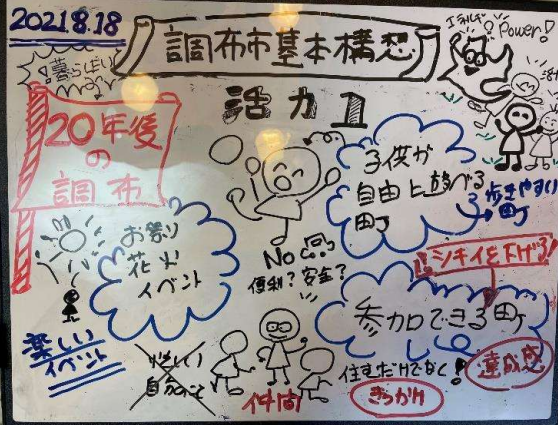 2021.8.18
調布市基本構想
Power!
暮らしばい
活力1
20年後
の
調布
子供が
自由に遊べる
町
歩きやすい
町
お祭り
花火
イベント
No
便利?安全?
シキイを下げる
参加できる町
楽しい
イベント
忙しい
自分のこと
仲間
住むだけでなく!
きっかけ
達成感